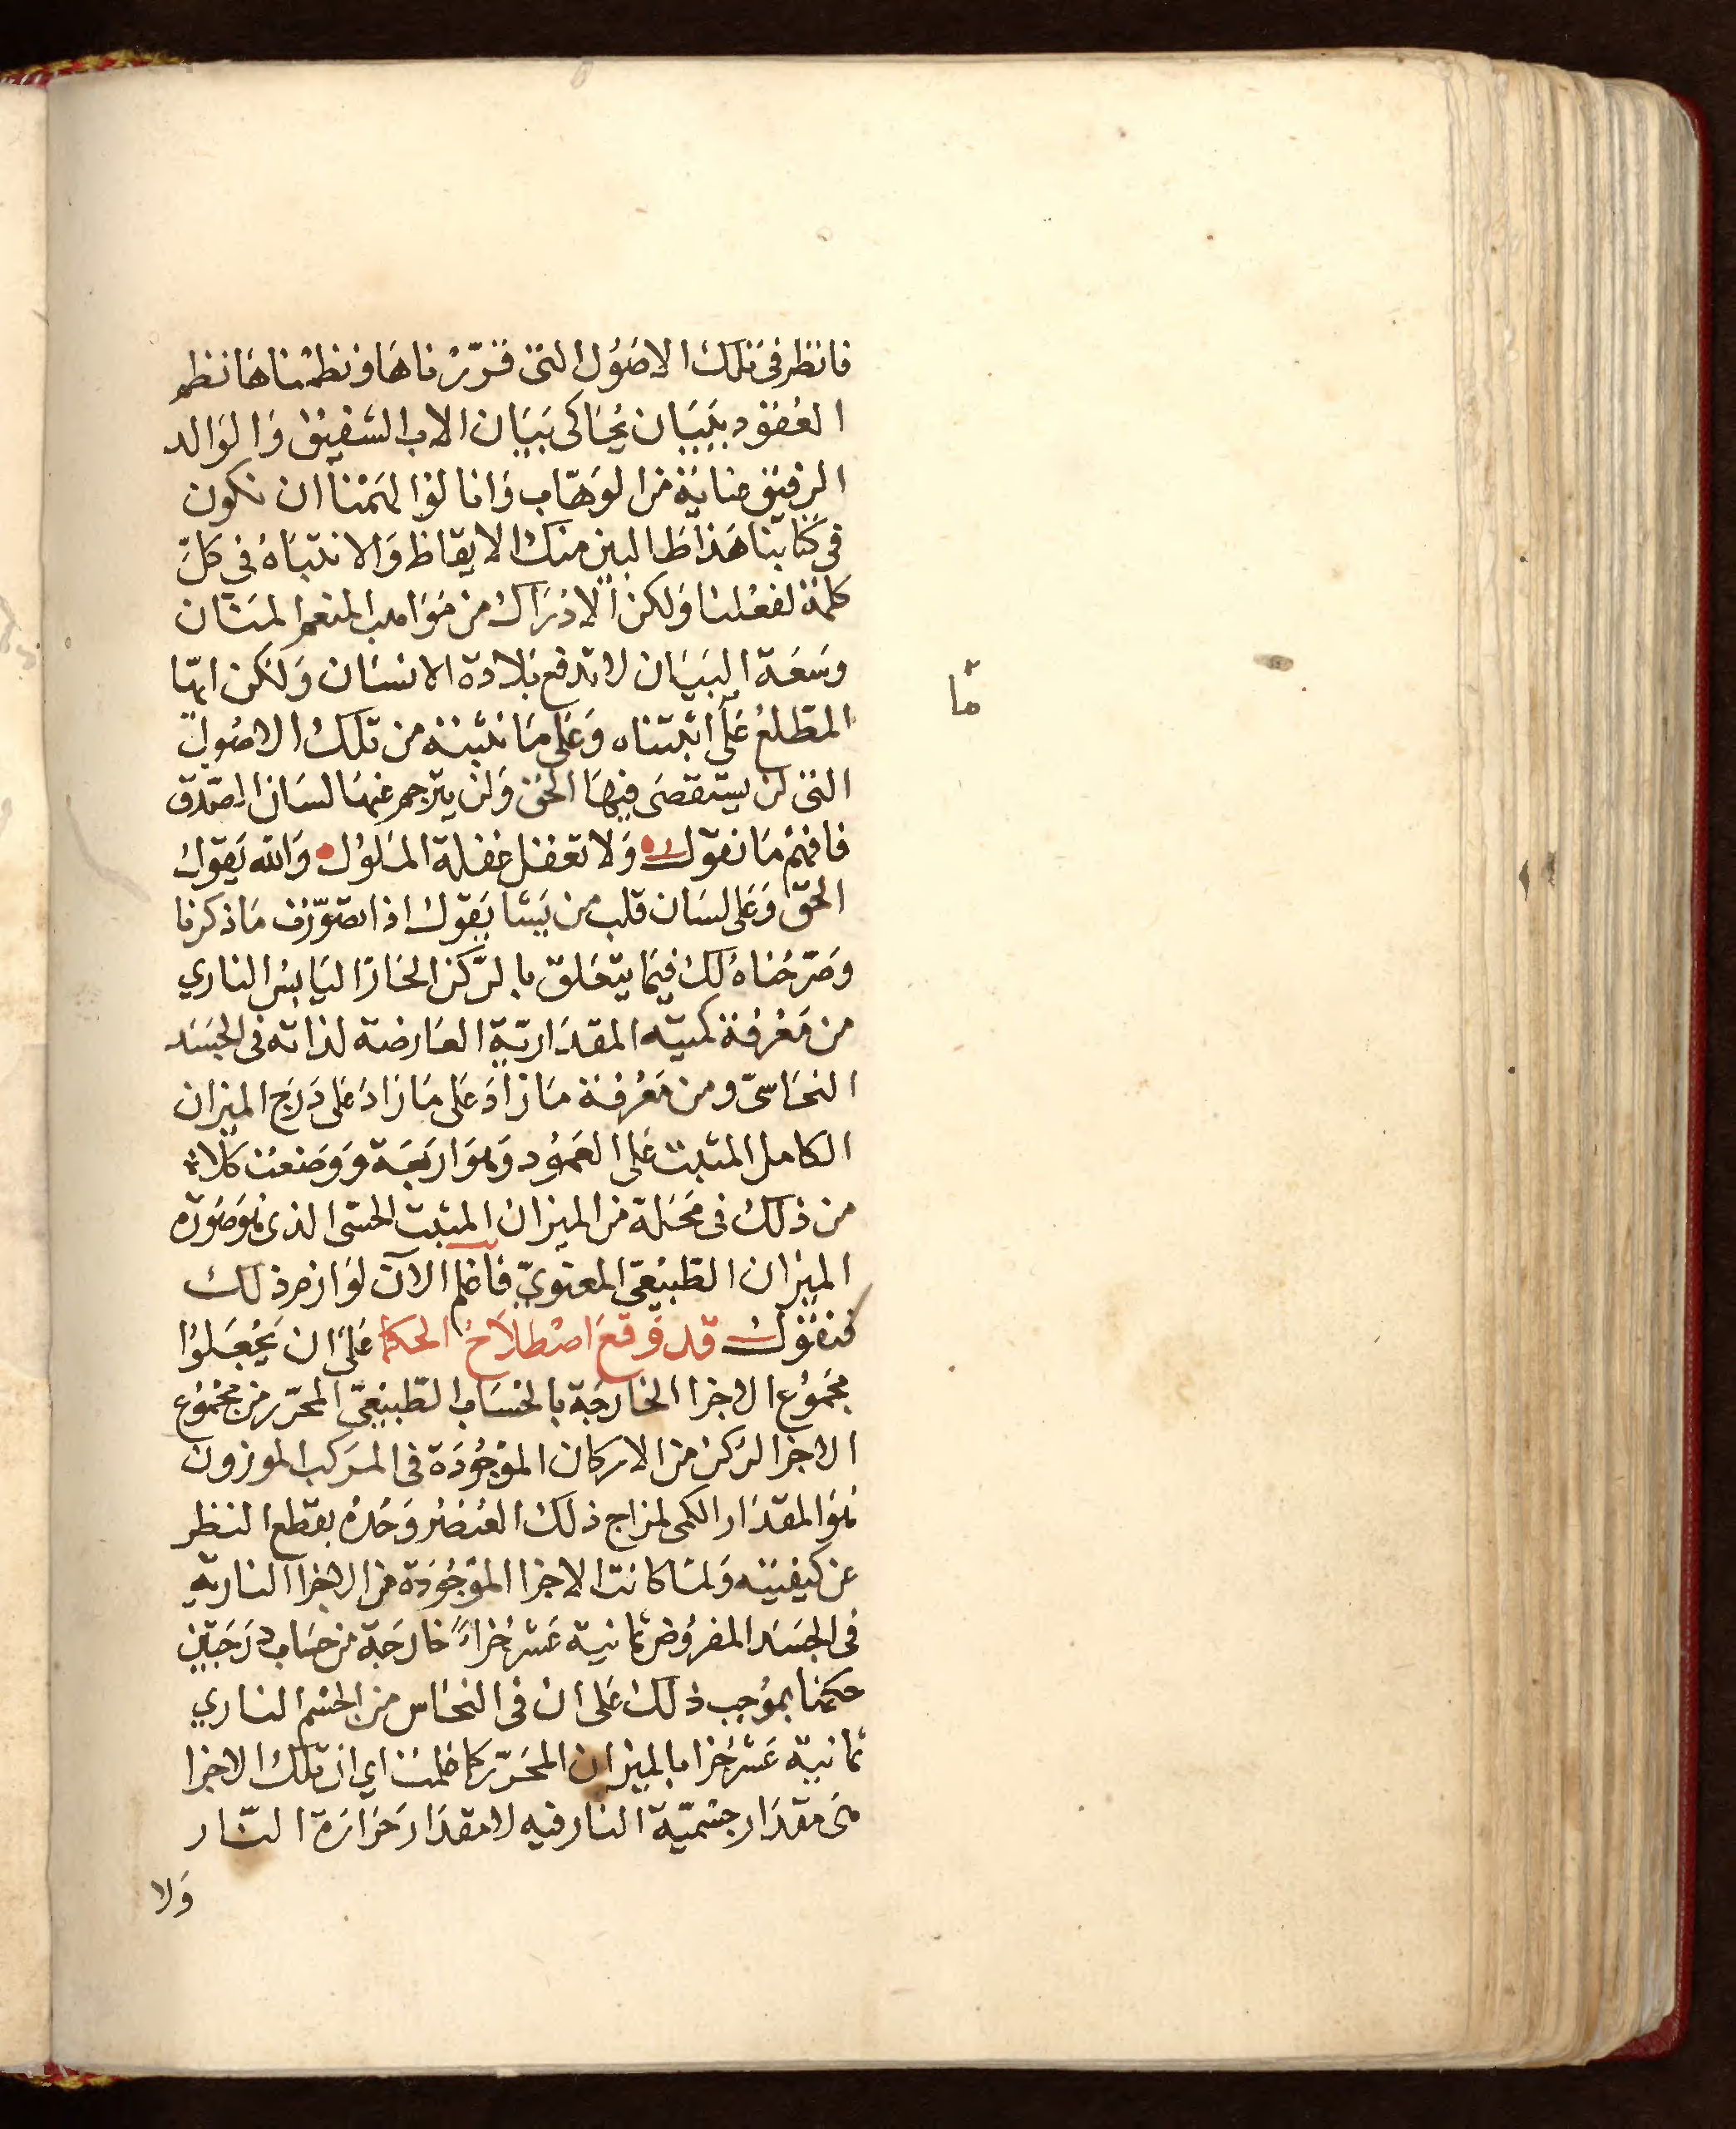 فانظر في تلك الاصول التي قررناها ونظمناها نظم
العقود ببيان يحاكى بيان الاب الشفيق والوالد
الرفيق عناية من الوهاب وانا لو الهمنا ان نكون
في كتابنا هذا طالبين منك الايقاظ والانتباه في كل
كلمة لفعلنا ولكن الادراك من مواهب المنعم المنان
وسعة البيان لا تدفع بلادة الانسان ولكن ايها
المطلع على اثبتناه وعلى ما نثبته من تلك الاصول
ما
التي لن يستقصى فيها الحق ولن يترجم عنها لسان الصدق
فافهم ما نقول ولا تغفل غفلة الملول والله يقول
الحق وعلى لسان قلب من يشا يقول اذا تصورت ما ذكرنا
وصرحناه لك فيما يتعلق بالركن الحار اليابس الناري
من معرفة كميته المقدارية العارضة لذاته في الجسد
النحاسي ومن معرفة ما زاد على ما زاد على درج الميزان
الكامل المثبت على العمود وهو اربعة ووضعت كلا
من ذلك في محله من الميزان المثبت الحسى الذى هو صورة
الميزان الطبيعي المعنوي فاعلم الآن لوازم ذلك
فنقول قد وقع اصطلاح الحكما على ان يجعلوا
مجموع الاجزا الخارجة بالحساب الطبيعي المحرر من مجموع
الاجزا لركن من الاركان الموجودة في المركب الموزون
هو المقدار الكمى لمزاج ذلك العنصر وحده بقطع النظر
عن كيفيته ولما كانت الاجزا الموجودة من الاجزا النارية
في الجسد المفروض ثمانية عشر جزاءً خارجة من حساب درجتين
حكمنا بموجب ذلك على ان في النحاس من الجسم الناري
ثمانية عشر جزا بالميزان المحرر كما علمت اي ان تلك الاجزا
هى مقدار جسمية النار فيه لا مقدار حرارة النار
ولا